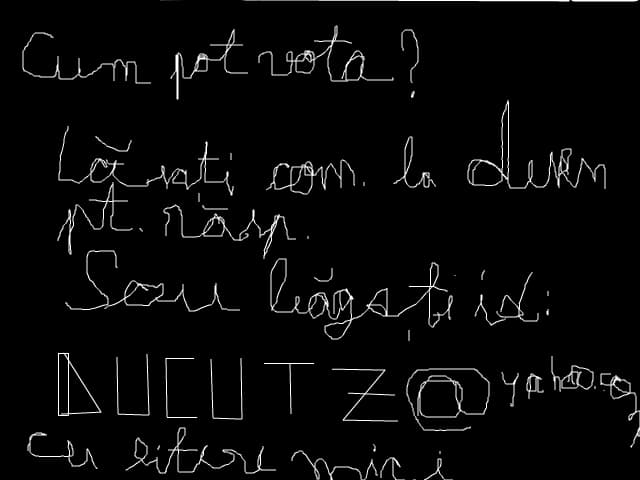 Cum pot vota?
Lăsați com. la desen
pt. răsp.
Sau băgați id:
DUCUTZ@yahoo.com
cu litere mici